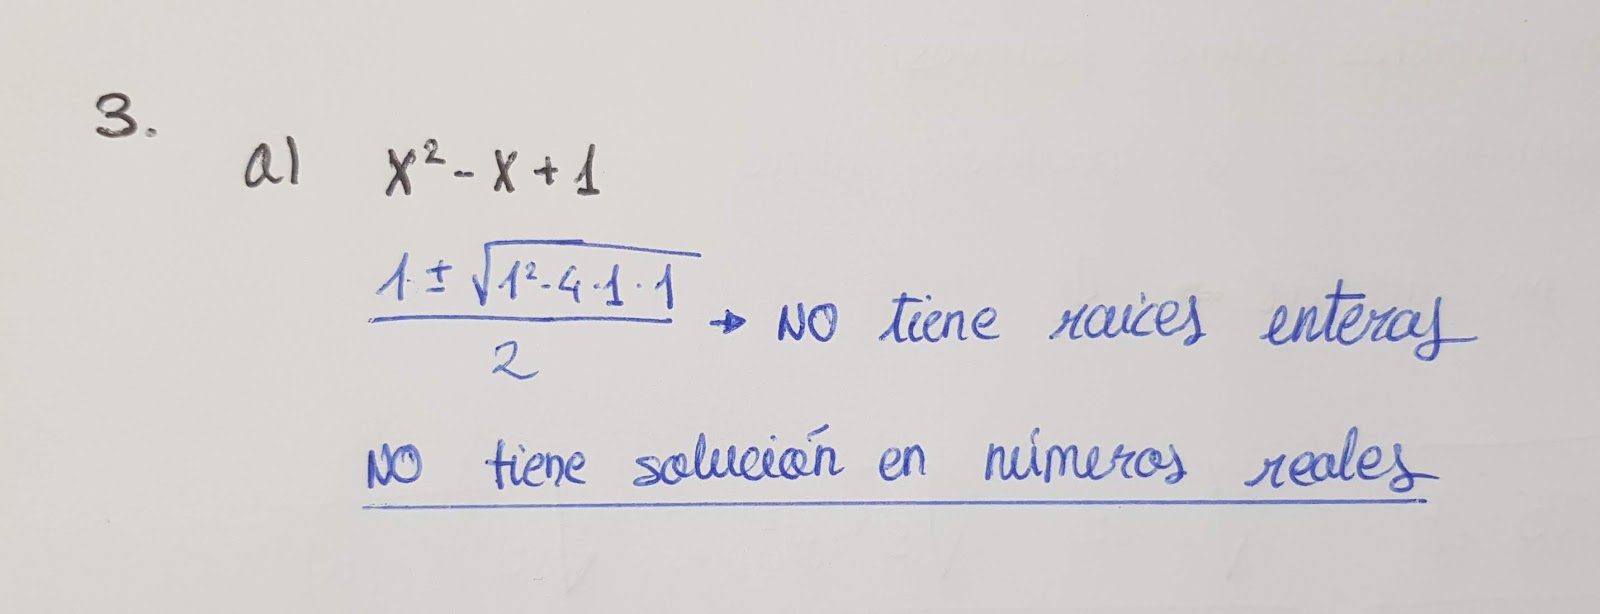 3.
a) x² - x + 1
1 ± √1² - 4 · 1 · 1 / 2 → NO tiene raíces enteras
NO tiene solución en números reales